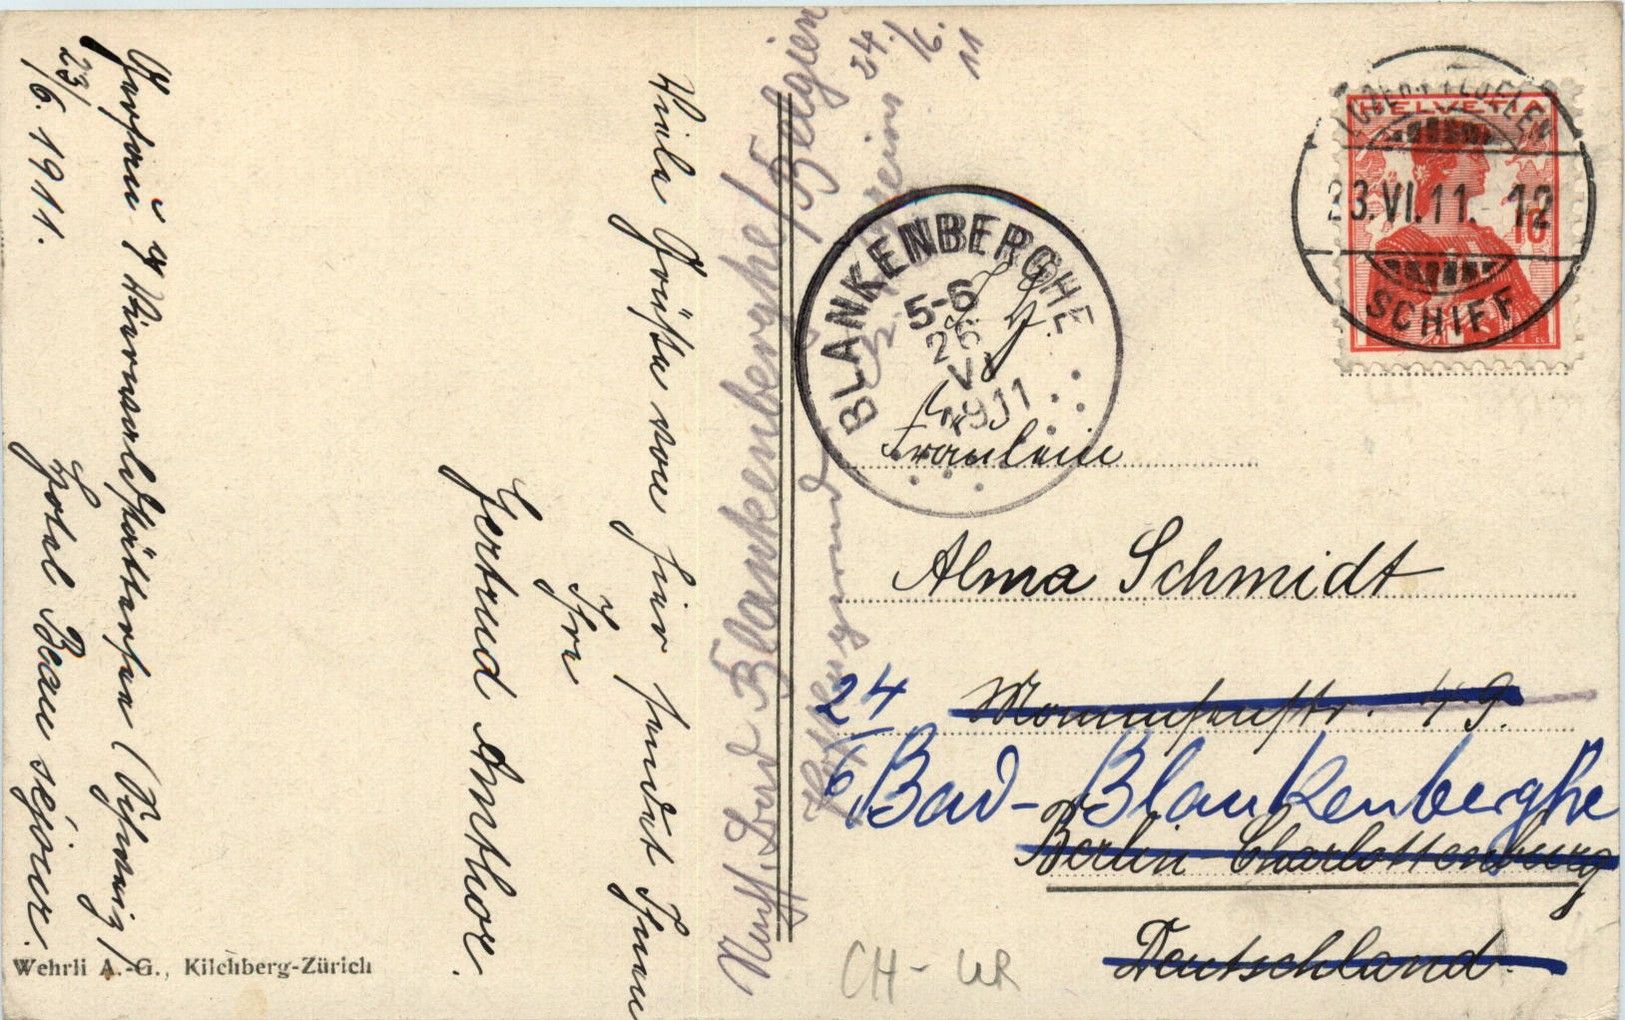 Gersau a/ Vierwaldstättersee (Schweiz)
23/6. 1911.
Hotel Beau séjour.
Viele Grüße von hier sendet Ihnen
Ihre
Gertrud Anthor.
Wehrli A.-G., Kilchberg-Zürich
Bad Blankenberghe/Belgien
24.
/6.
11
BLANKENBERGHE
5-6
26
VI
1911
HELVETIA
10
23.VI.11. 12
SCHIFF
Fräulein
Alma Schmidt
Mommsenstr. 49.
24/6
Bad-Blankenberghe
Berlin-Charlottenburg
Deutschland.
CH-UR